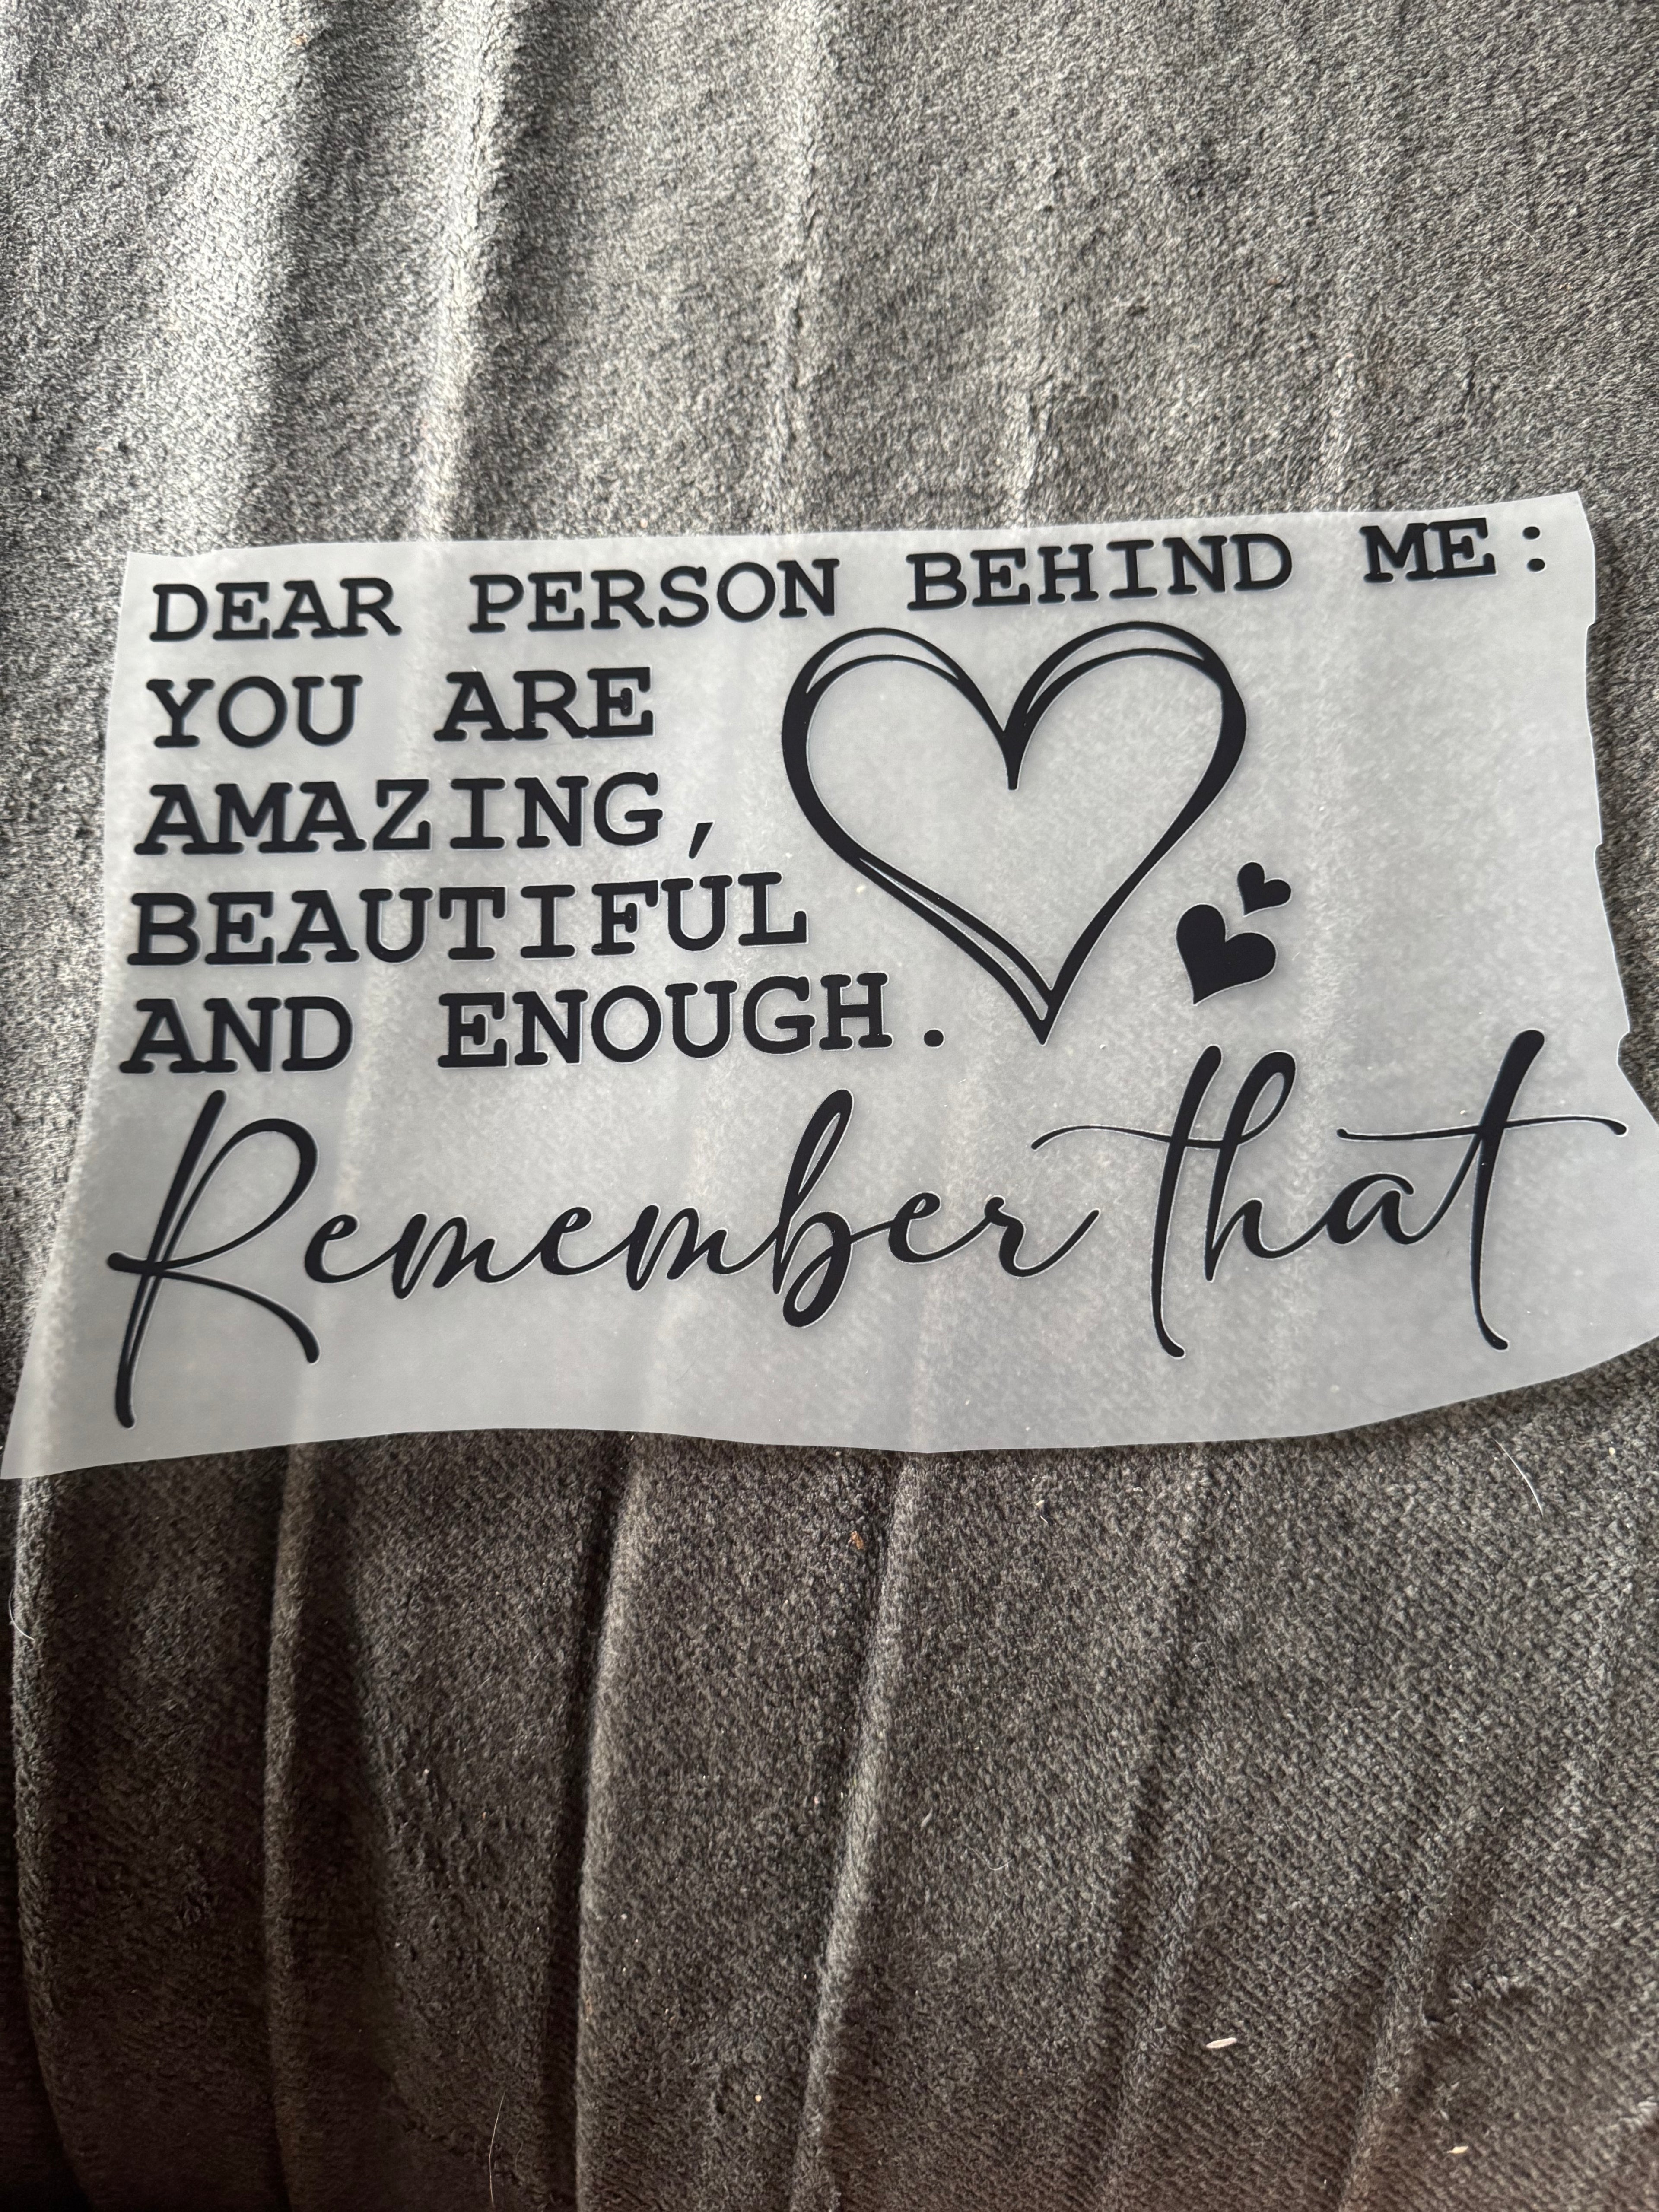 DEAR PERSON BEHIND ME:
YOU ARE
AMAZING,
BEAUTIFUL
AND ENOUGH.
Remember that